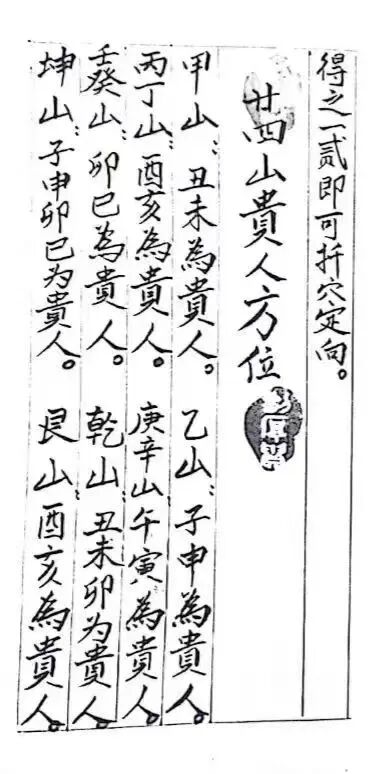 得之一贰即可扦穴定向。
廿四山貴人方位
甲山：丑未為貴人。乙山：子申為貴人。
丙丁山：酉亥為貴人。庚辛山：午寅為貴人。
壬癸山：卯巳為貴人。乾山：丑未卯为貴人。
坤山：子申卯巳为貴人。艮山：酉亥為貴人。